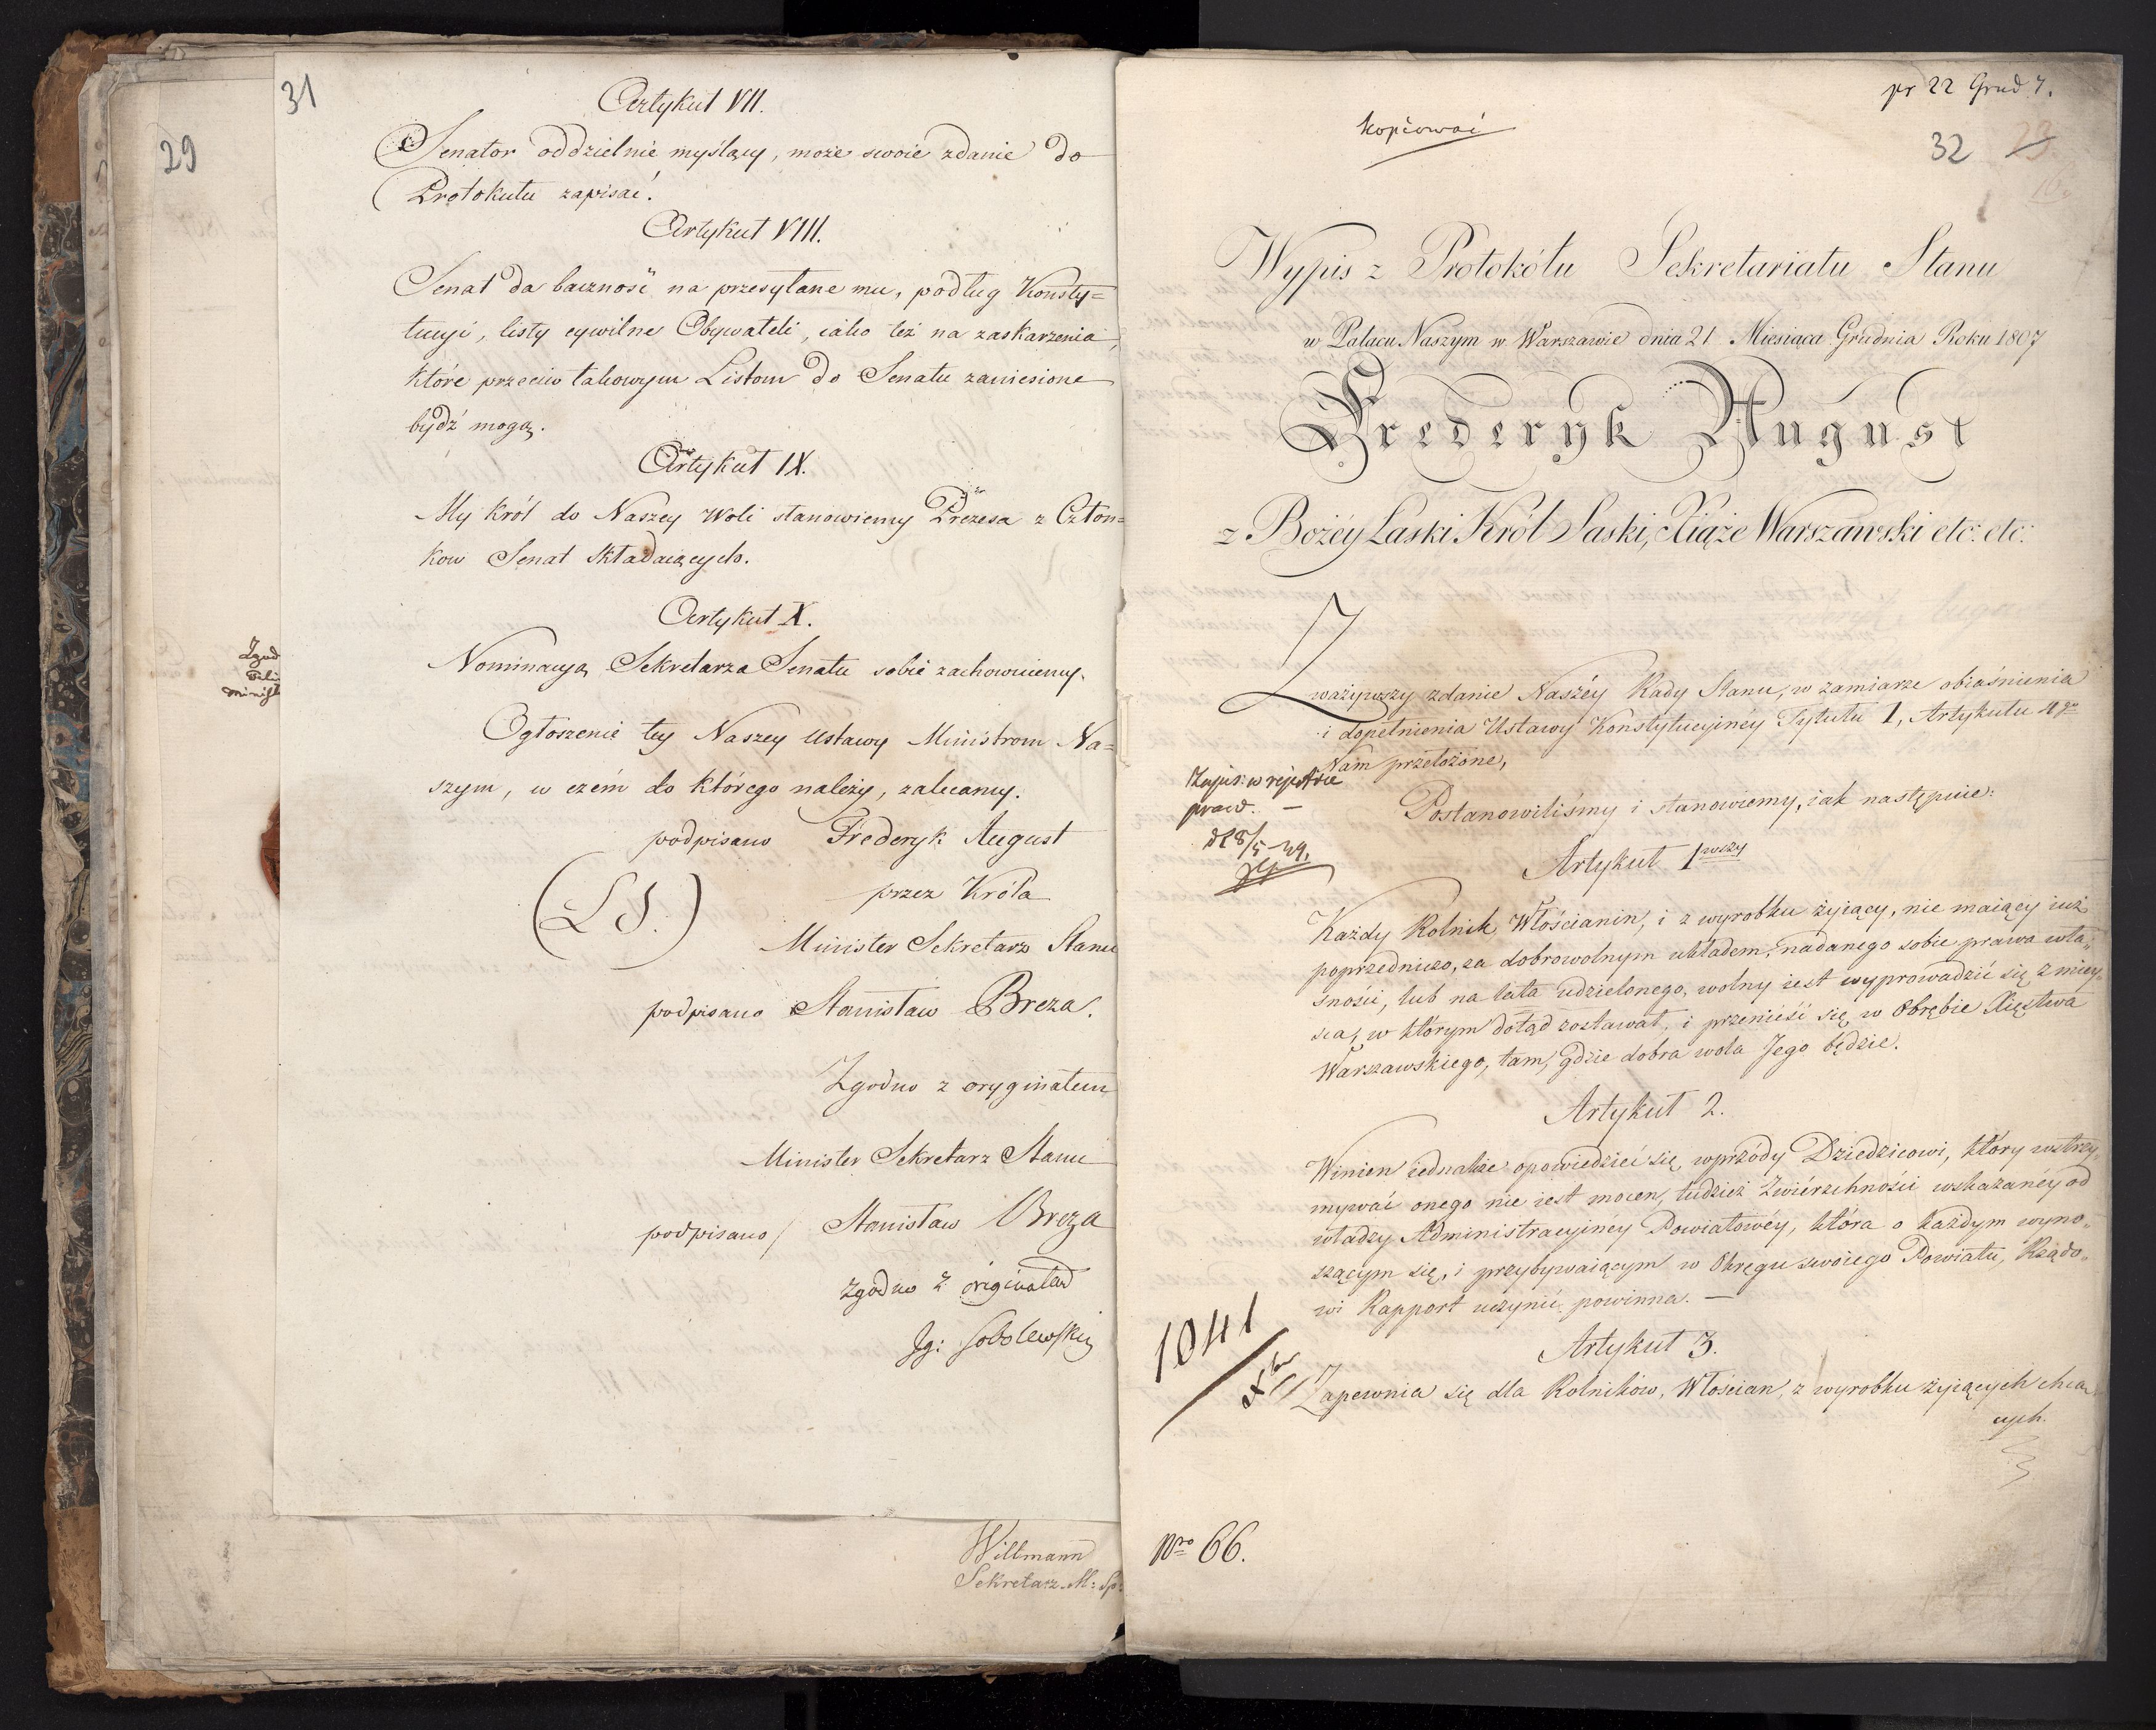 31
29
Artykuł VII.
Senator oddzielnie myślący, może swoie zdanie do
Protokułu zapisać.
Artykuł VIII.
Senat da baczność na przesyłane mu, podług Konsty=
tucyi, listy cywilne Obywateli, iako też na zaskarzenia,
które przeciw takowym Listom do Senatu zaniesione
bydź mogą.
Artykuł IX.
My Król do Naszey Woli stanowiemy Prezesa z Człon=
kow Senat składaiących.
Artykuł X.
Nominacyą Sekretarza Senatu sobie zachowuiemy.
Ogłoszenie tey Naszey Ustawy Ministrom Na=
szym, w czém do którego należy, zalecamy.
podpisano Frederyk August
(LS.)
przez Króla
Minister Sekretarz Stanu
podpisano Stanisław Breza.
Zgodno z oryginałem
Minister Sekretarz Stanu
podpisano/ Stanisław Breza
Zgodno z originałem
Ig: Sobolewski
Willmann
Sekretarz M: Sp:
Zgod
Minist
pr 22 Grud 7.
kopiować
32 29
Wypis z Protokółu Sekretariatu Stanu
w Pałacu Naszym w Warszawie dnia 21 Miesiąca Grudnia Roku 1807
Frederyk August
z Bożey Łaski Król Saski, Xiąże Warszawski etc: etc:
Zważywszy zdanie Naszéy Rady Stanu, w zamiarze obiaśnienia
i dopełnienia Ustawy Konstytucyinéy Tytułu 1, Artykułu 4go
Nam przełożone,
Zapis: w rejestrze
praw. —
Postanowiliśmy i stanowiemy, iak następuie:
Artykuł 1wszy
Każdy Rolnik Włościanin, i z wyrobku żyiący, nie maiący iuż
poprzedniczo, za dobrowolnym układem, nadanego sobie prawa wła„
sności, lub na lata udzielonego, wolny iest wyprowadzić się z miey„
sca, w którym dotąd zostawał, i przenieść się w Obrębie Xięstwa
Warszawskiego, tam, gdzie dobra wola Jego będzie.
Artykuł 2.
Winien iednakże opowiedzieć się wprzódy Dziedzicowi, który wstrzy„
mywać onego nie iest mocen, tudzież Zwiérzchności wskazanéy od
władzy Administracyinéy Powiatowéy, która o każdym wyno„
szącym się, i przybywaiącym w Okręgu swoiego Powiatu, Rządo„
wi Rapport uczynić powinna. —
Artykuł 3.
Zapewnia się dla Rolników, Włościan, z wyrobku żyiących chcą
cych.
1041
Nro 66.